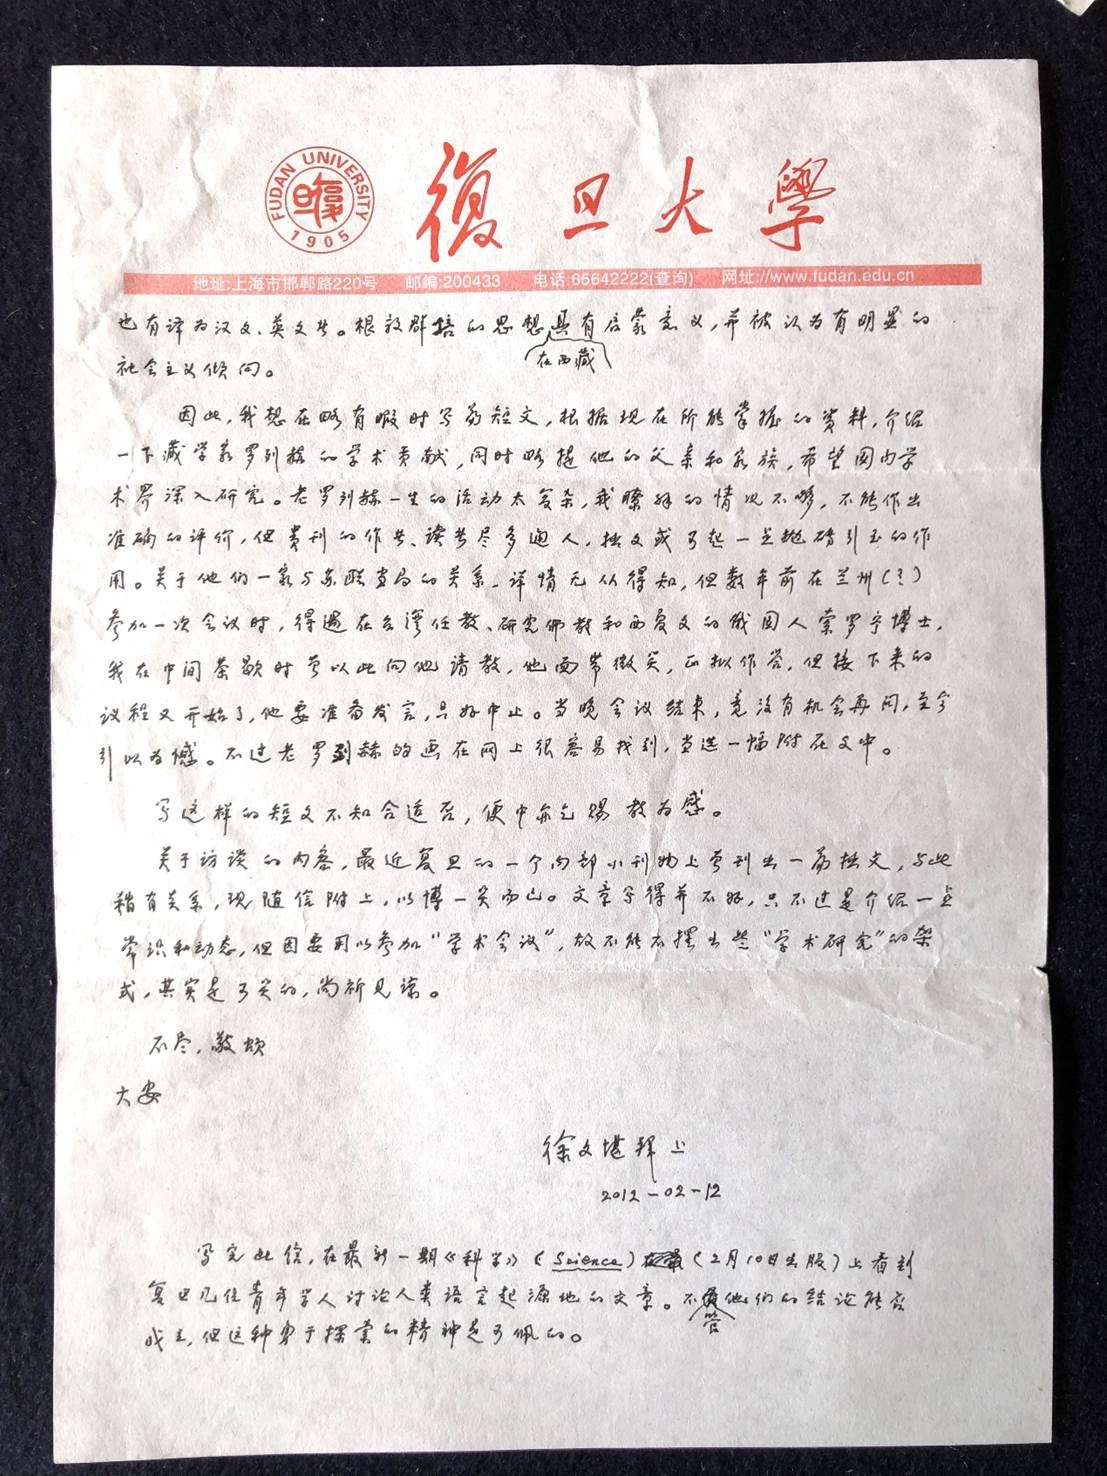 FUDAN UNIVERSITY
1905
復旦大學
地址:上海市邯郸路220号 邮编:200433 电话:65642222(查询) 网址://www.fudan.edu.cn
也有译为汉文、英文者。根敦群培的思想具有启蒙意义,并被认为有明显的
在西藏
社会主义倾向。
因此,我想在略有暇时写篇短文,根据现在所能掌握的资料,介绍
一下藏学家罗列赫的学术贡献,同时略提他的父亲和家族,希望国内学
术界深入研究。老罗列赫一生的活动太复杂,我瞭解的情况不够,不能作出
准确的评价,但贵刊的作者、读者尽多通人,拙文或可起一点抛砖引玉的作
用。关于他们一家与苏联当局的关系,详情无从得知,但数年前在兰州(?)
参加一次会议时,得遇在台湾任教、研究佛教和西夏文的俄国人索罗宁博士,
我在中间茶歇时曾以此向他请教,他面带微笑,正拟作答,但接下来的
议程又开始了,他要准备发言,只好中止。当晚会议结束,竟没有机会再问,至今
引以为憾。不过老罗列赫的画在网上很容易找到,当选一幅附在文中。
写这样的短文不知合适否,便中亦乞赐教为感。
关于访谈的内容,最近复旦的一个内部小刊物上曾刊出一篇拙文,与此
稍有关系,现随信附上,以博一笑而已。文章写得并不好,只不过是介绍一点
常识和动态,但因要用以参加“学术会议”,故不能不摆出些“学术研究”的架
式,其实是可笑的,尚祈见谅。
不尽,敬颂
大安
徐文堪拜上
2012-02-12
写完此信,在最新一期《科学》(Science)(2月10日出版)上看到
复旦几位青年学人讨论人类语言起源地的文章。不管他们的结论能否
成立,但这种勇于探索的精神是可佩的。